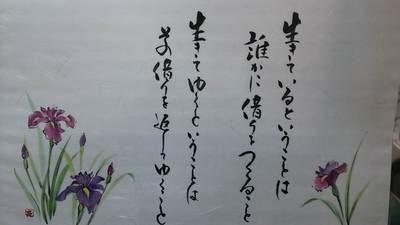 生きているということは
誰かに借りをつくること
生きてゆくということは
その借りを返してゆくこと